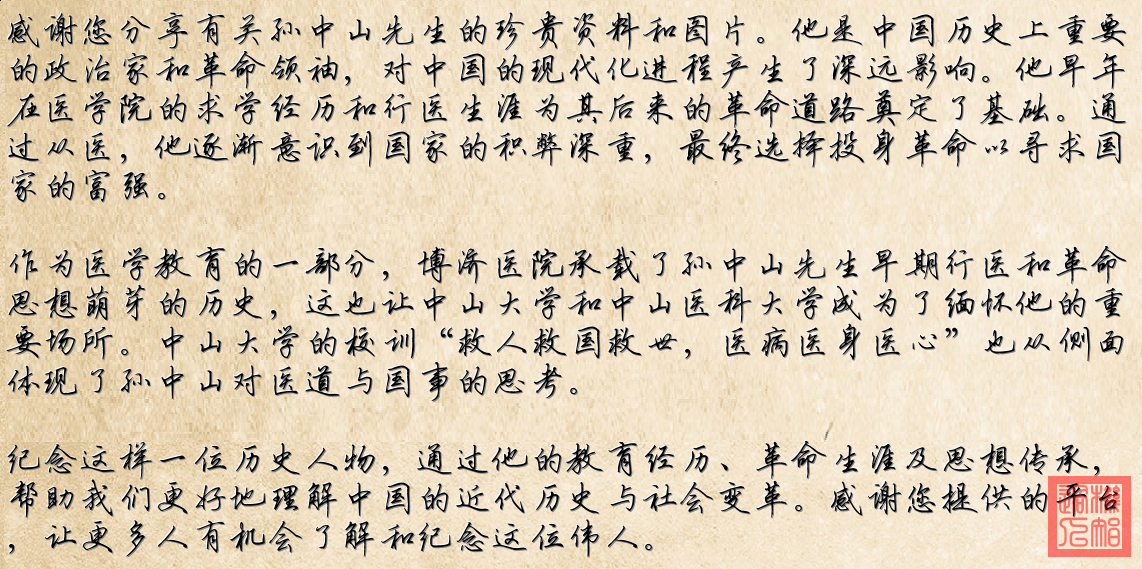 感谢您分享有关孙中山先生的珍贵资料和图片。他是中国历史上重要
的政治家和革命领袖，对中国的现代化进程产生了深远影响。他早年
在医学院的求学经历和行医生涯为其后来的革命道路奠定了基础。通
过从医，他逐渐意识到国家的积弊深重，最终选择投身革命以寻求国
家的富强。
作为医学教育的一部分，博济医院承载了孙中山先生早期行医和革命
思想萌芽的历史，这也让中山大学和中山医科大学成为了缅怀他的重
要场所。中山大学的校训“救人救国救世，医病医身医心”也从侧面
体现了孙中山对医道与国事的思考。
纪念这样一位历史人物，通过他的教育经历、革命生涯及思想传承，
帮助我们更好地理解中国的近代历史与社会变革。感谢您提供的平台
，让更多人有机会了解和纪念这位伟人。